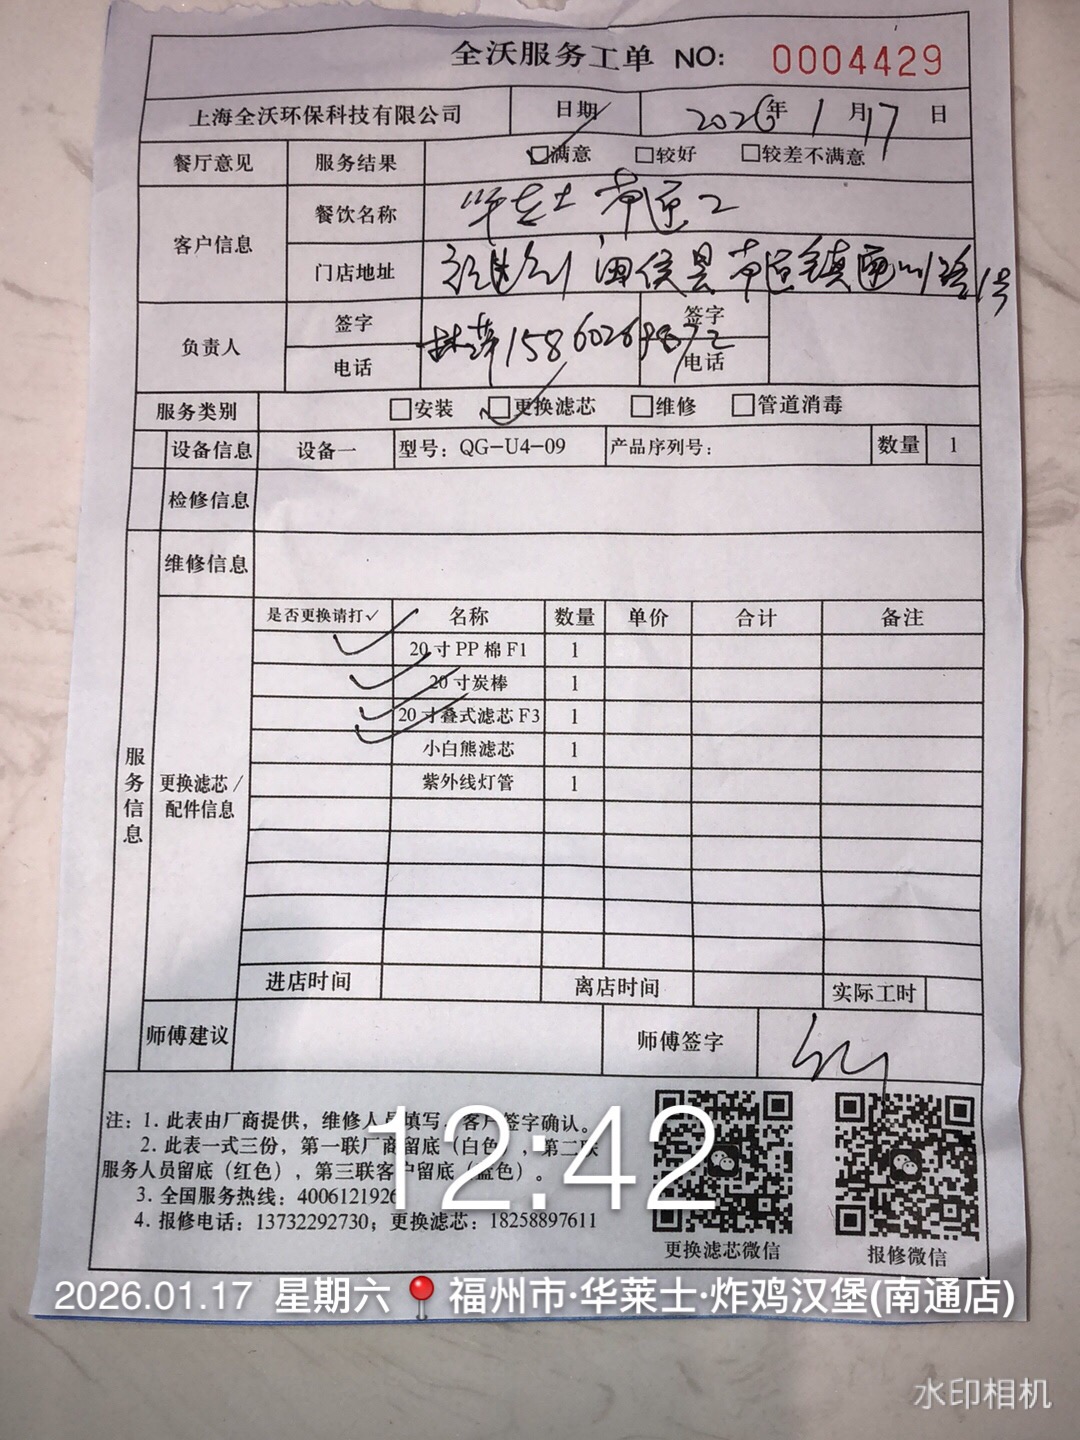 全沃服务工单 NO: 0004429
上海全沃环保科技有限公司 日期 2026年 1月17日
餐厅意见 服务结果 ☑满意 □较好 □较差不满意
客户信息 餐饮名称 华莱士 南通2
门店地址 福州 闽侯县 南通镇通州路1号
负责人 签字 签字
电话 电话
服务类别 □安装 ☑更换滤芯 □维修 □管道消毒
设备信息 设备一 型号：QG-U4-09 产品序列号： 数量 1
检修信息
维修信息
服务信息
更换滤芯/配件信息
是否更换请打✓ 名称 数量 单价 合计 备注
✓ 20寸PP棉F1 1
✓ 20寸炭棒 1
✓ 20寸叠式滤芯F3 1
✓ 小白熊滤芯 1
紫外线灯管 1
进店时间 离店时间 实际工时
师傅建议 师傅签字
注：1. 此表由厂商提供，维修人员填写，客户签字确认。
2. 此表一式三份，第一联厂商留底（白色），第二联
服务人员留底（红色），第三联客户留底（蓝色）。
3. 全国服务热线：4006121926
4. 报修电话：13732292730；更换滤芯：18258897611
更换滤芯微信 报修微信
12:42
2026.01.17 星期六 福州市·华莱士·炸鸡汉堡(南通店)
水印相机